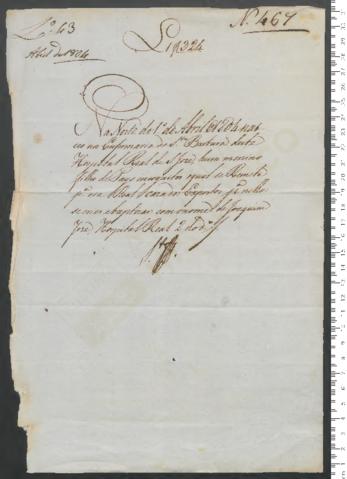 Lº 43
Nº 467
Abril de 1804
L 1 f 324
Na Noite do 1º de Abril de 1804 nas
ceo na Enfermaria de Stª Barbara deste
Hospital Real de S. José hum menino
filho de Pays incognitos o qual se Remete
pª a Real Casa dos Expostos, pª nella
se mor e baptizar com o nome de Joaquim
José Hospital Real 2 do dº